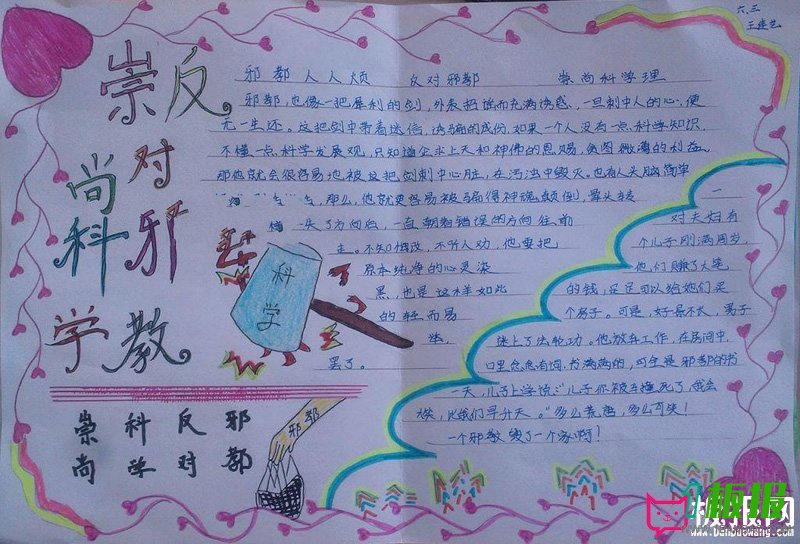 六.三
王佳艺
崇尚科学
反对邪教
邪教人人烦 反对邪教 崇尚科学理
邪教,也像一把犀利的剑,外表招谣而充满诱惑,一旦刺中人的心,便
无一生还。这把剑中带着迷信,诱骗的成份,如果一个人没有一点科学知识,
不懂一点科学发展观,只知道企求上天和神佛的恩赐,贪图微薄的利益。
那他就会很容易地被这把剑刺中心脏,在污浊中毁灭,也有人头脑简单
那么,他就更容易被骗得神魂颠倒,晕头转
失了方向后,一直朝着错误的方向往前
走。不知悔改,不听人劝,他要把
原本纯净的心灵染
黑,也是这样如此
的轻而易
举
罢了。
一
对夫妇有
个儿子刚满周岁,
他们赚了大笔
的钱,足足可以给她们买
个房子。可是,好景不长,男子
迷上了法轮功。他放弃工作,在房间中
口里念念有词,书满满的,可全是邪教的书
一天,儿子上学说:“儿子你被车撞死了,我会
比我们早升天。”多么荒唐,多么可笑!
一个邪教毁了一个家啊!
科学
崇尚科学反对邪教
邪教
板报网
www.banbaowang.com